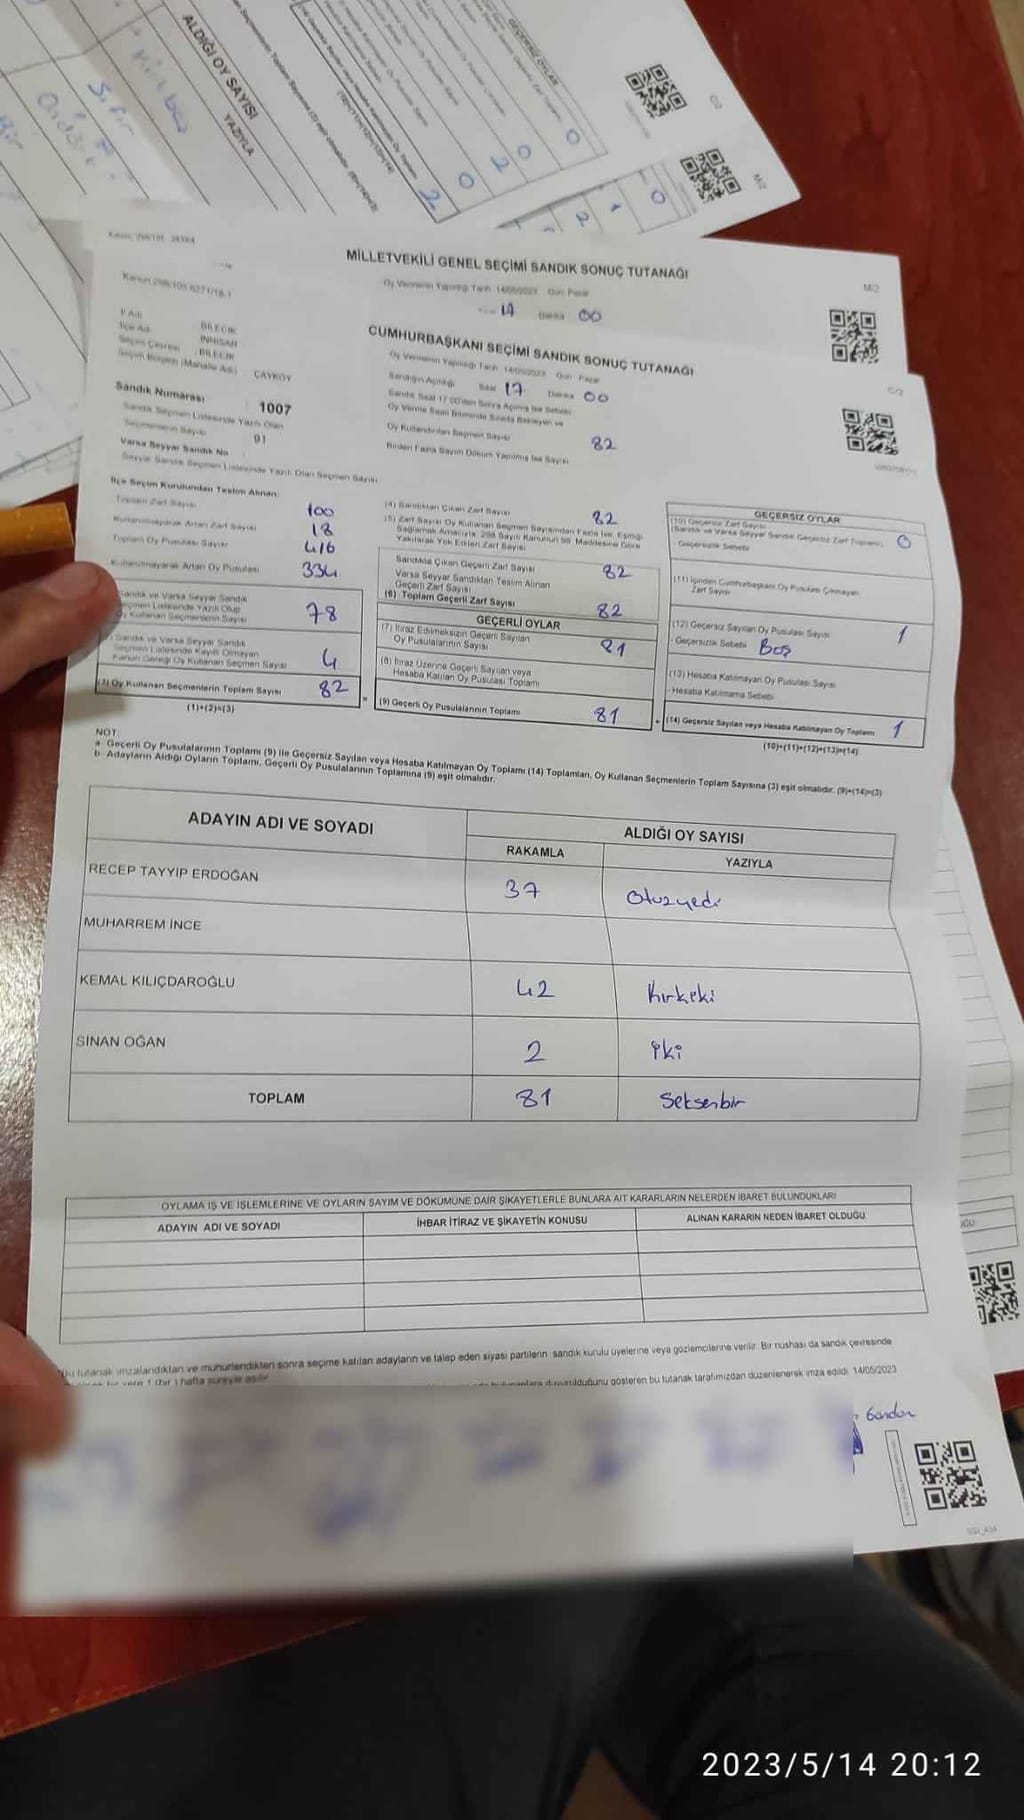 ALDIĞI OY SAYISI
YAZIYLA
Sıfır
GEÇERSİZ OYLAR
0
2
0
0
2
0
2
C/2
M/2
MİLLETVEKİLİ GENEL SEÇİMİ SANDIK SONUÇ TUTANAĞI
M/2
Oy Vermenin Yapıldığı Tarih 14/05/2023 Gün Pazar
17 Dakika 00
CUMHURBAŞKANI SEÇİMİ SANDIK SONUÇ TUTANAĞI
C/2
Oy Vermenin Yapıldığı Tarih 14/05/2023 Gün Pazar
Sandığın Açıldığı Saat 17 Dakika 00
Sandık Saat 17.00'den Sonra Açılmış İse Sebebi
Oy Verme Saati Bitiminde Sırada Bekleyen ve
Oy Kullandırılan Seçmen Sayısı 82
Birden Fazla Sayım Döküm Yapılmış İse Sayısı
İl Adı BİLECİK
İlçe Adı İNHİSAR
Seçim Çevresi BİLECİK
Seçim Bölgesi (Mahalle Adı) ÇAYKÖY
Sandık Numarası 1007
Sandık Seçmen Listesinde Yazılı Olan
Seçmenlerin Sayısı 91
Varsa Seyyar Sandık No
Seyyar Sandık Seçmen Listesinde Yazılı Olan Seçmen Sayısı
İlçe Seçim Kurulundan Teslim Alınan:
Toplam Zarf Sayısı 100
Kullanılmayarak Artan Zarf Sayısı 18
Toplam Oy Pusulası Sayısı 416
Kullanılmayarak Artan Oy Pusulası 334
Sandık ve Varsa Seyyar Sandık
Seçmen Listesinde Yazılı Olup
Oy Kullanan Seçmenlerin Sayısı 78
Sandık ve Varsa Seyyar Sandık
Seçmen Listesinde Kayıtlı Olmayan
Kanun Gereği Oy Kullanan Seçmen Sayısı 4
(3) Oy Kullanan Seçmenlerin Toplam Sayısı 82
(1)+(2)=(3)
(4) Sandıktan Çıkan Zarf Sayısı 82
(5) Zarf Sayısı Oy Kullanan Seçmen Sayısından Fazla İse, Eşitliği
Sağlamak Amacıyla, 298 Sayılı Kanunun 98. Maddesine Göre
Yakılarak Yok Edilen Zarf Sayısı
Sandıkta Çıkan Geçerli Zarf Sayısı 82
Varsa Seyyar Sandıktan Teslim Alınan
Geçerli Zarf Sayısı
(6) Toplam Geçerli Zarf Sayısı 82
GEÇERLİ OYLAR
(7) İtiraz Edilmeksizin Geçerli Sayılan
Oy Pusulalarının Sayısı 81
(8) İtiraz Üzerine Geçerli Sayılan veya
Hesaba Katılan Oy Pusulası Toplamı
(9) Geçerli Oy Pusulalarının Toplamı 81
GEÇERSİZ OYLAR
(10) Geçersiz Zarf Sayısı
(Sandık ve Varsa Seyyar Sandık Geçersiz Zarf Toplamı) 0
- Geçersizlik Sebebi
(11) İçinden Cumhurbaşkanı Oy Pusulası Çıkmayan
Zarf Sayısı
(12) Geçersiz Sayılan Oy Pusulası Sayısı 1
- Geçersizlik Sebebi Boş
(13) Hesaba Katılmayan Oy Pusulası Sayısı
- Hesaba Katılmama Sebebi
(14) Geçersiz Sayılan veya Hesaba Katılmayan Oy Toplamı 1
(10)+(11)+(12)+(13)=(14)
NOT:
a- Geçerli Oy Pusulalarının Toplamı (9) ile Geçersiz Sayılan veya Hesaba Katılmayan Oy Toplamı (14) Toplamları, Oy Kullanan Seçmenlerin Toplam Sayısına (3) eşit olmalıdır. (9)+(14)=(3)
b- Adayların Aldığı Oyların Toplamı, Geçerli Oy Pusulalarının Toplamına (9) eşit olmalıdır.
ADAYIN ADI VE SOYADI
ALDIĞI OY SAYISI
RAKAMLA YAZIYLA
RECEP TAYYİP ERDOĞAN 37 otuzyedi
MUHARREM İNCE
KEMAL KILIÇDAROĞLU 42 Kırkeki
SİNAN OĞAN 2 iki
TOPLAM 81 Seksenbir
OYLAMA İŞ VE İŞLEMLERİNE VE OYLARIN SAYIM VE DÖKÜMÜNE DAİR ŞİKAYETLERLE BUNLARA AİT KARARLARIN NELERDEN İBARET BULUNDUKLARI
ADAYIN ADI VE SOYADI İHBAR İTİRAZ VE ŞİKAYETİN KONUSU ALINAN KARARIN NEDEN İBARET OLDUĞU
Bu tutanak imzalandıktan ve mühürlendikten sonra seçime katılan adayların ve talep eden siyasi partilerin sandık kurulu üyelerine veya gözlemcilerine verilir. Bir nushası da sandık çevresinde
1 (bir) hafta süreyle asılır.
duyurulduğunu gösteren bu tutanak tarafımızdan düzenlenerek imza edildi. 14/05/2023
2023/5/14 20:12